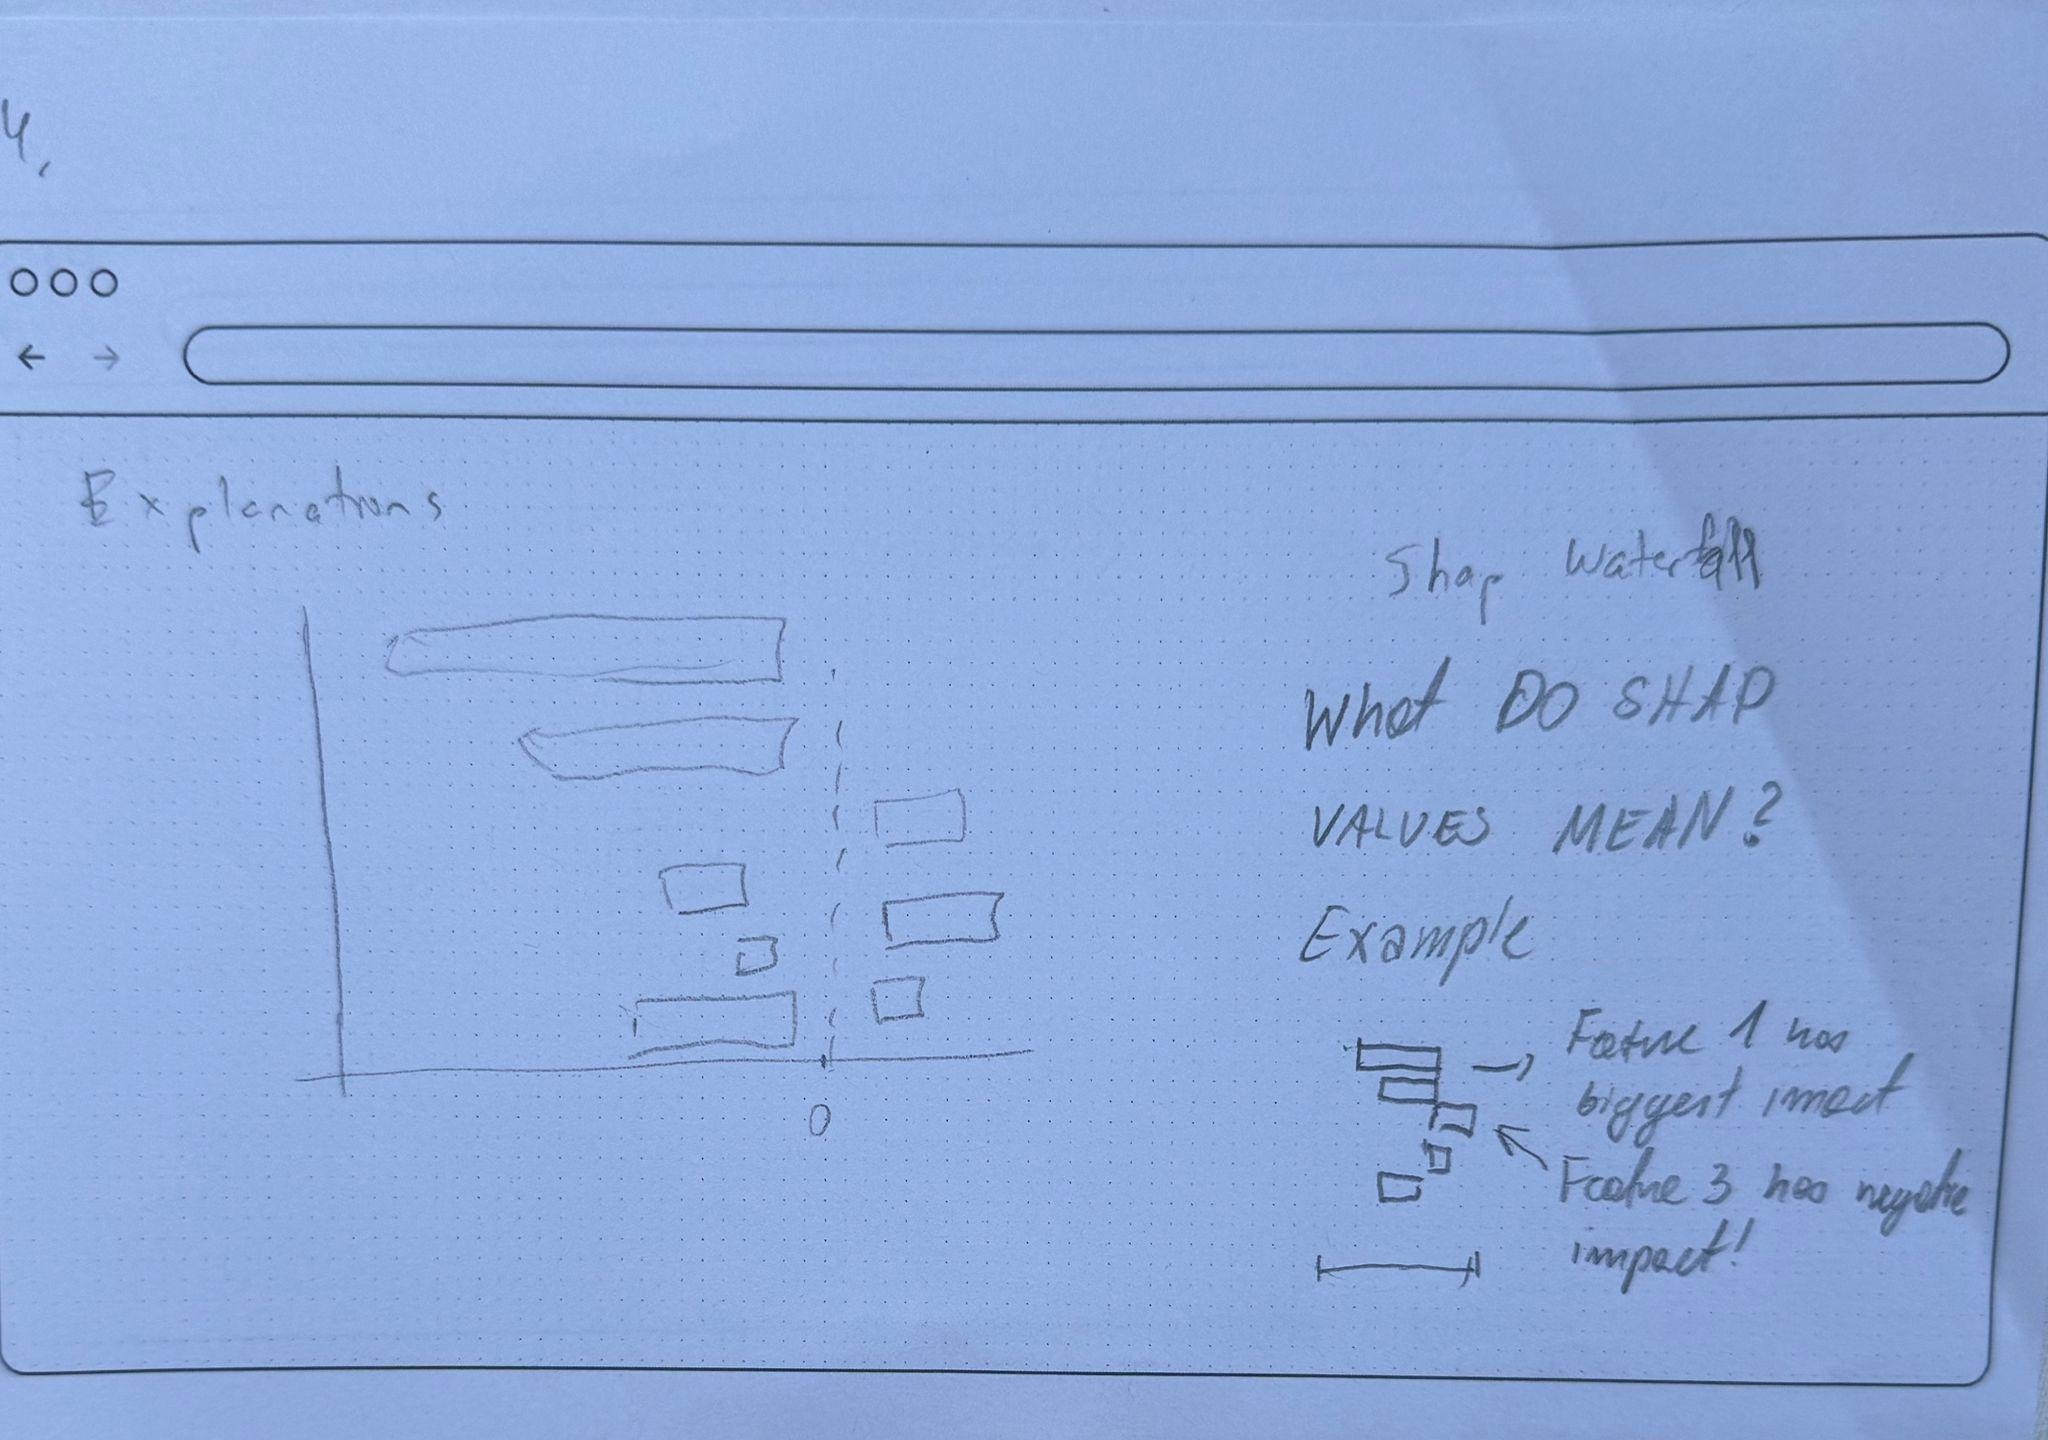 4.
Explanations
Shap Waterfall
What DO SHAP
VALUES MEAN?
Example
Feature 1 has
biggest impact
Feature 3 has negative
impact!
0